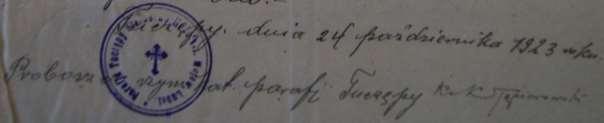 Tuczępy, dnia 24 października 1923 roku.
Proboszcz rzym kat. parafj Tuczępy